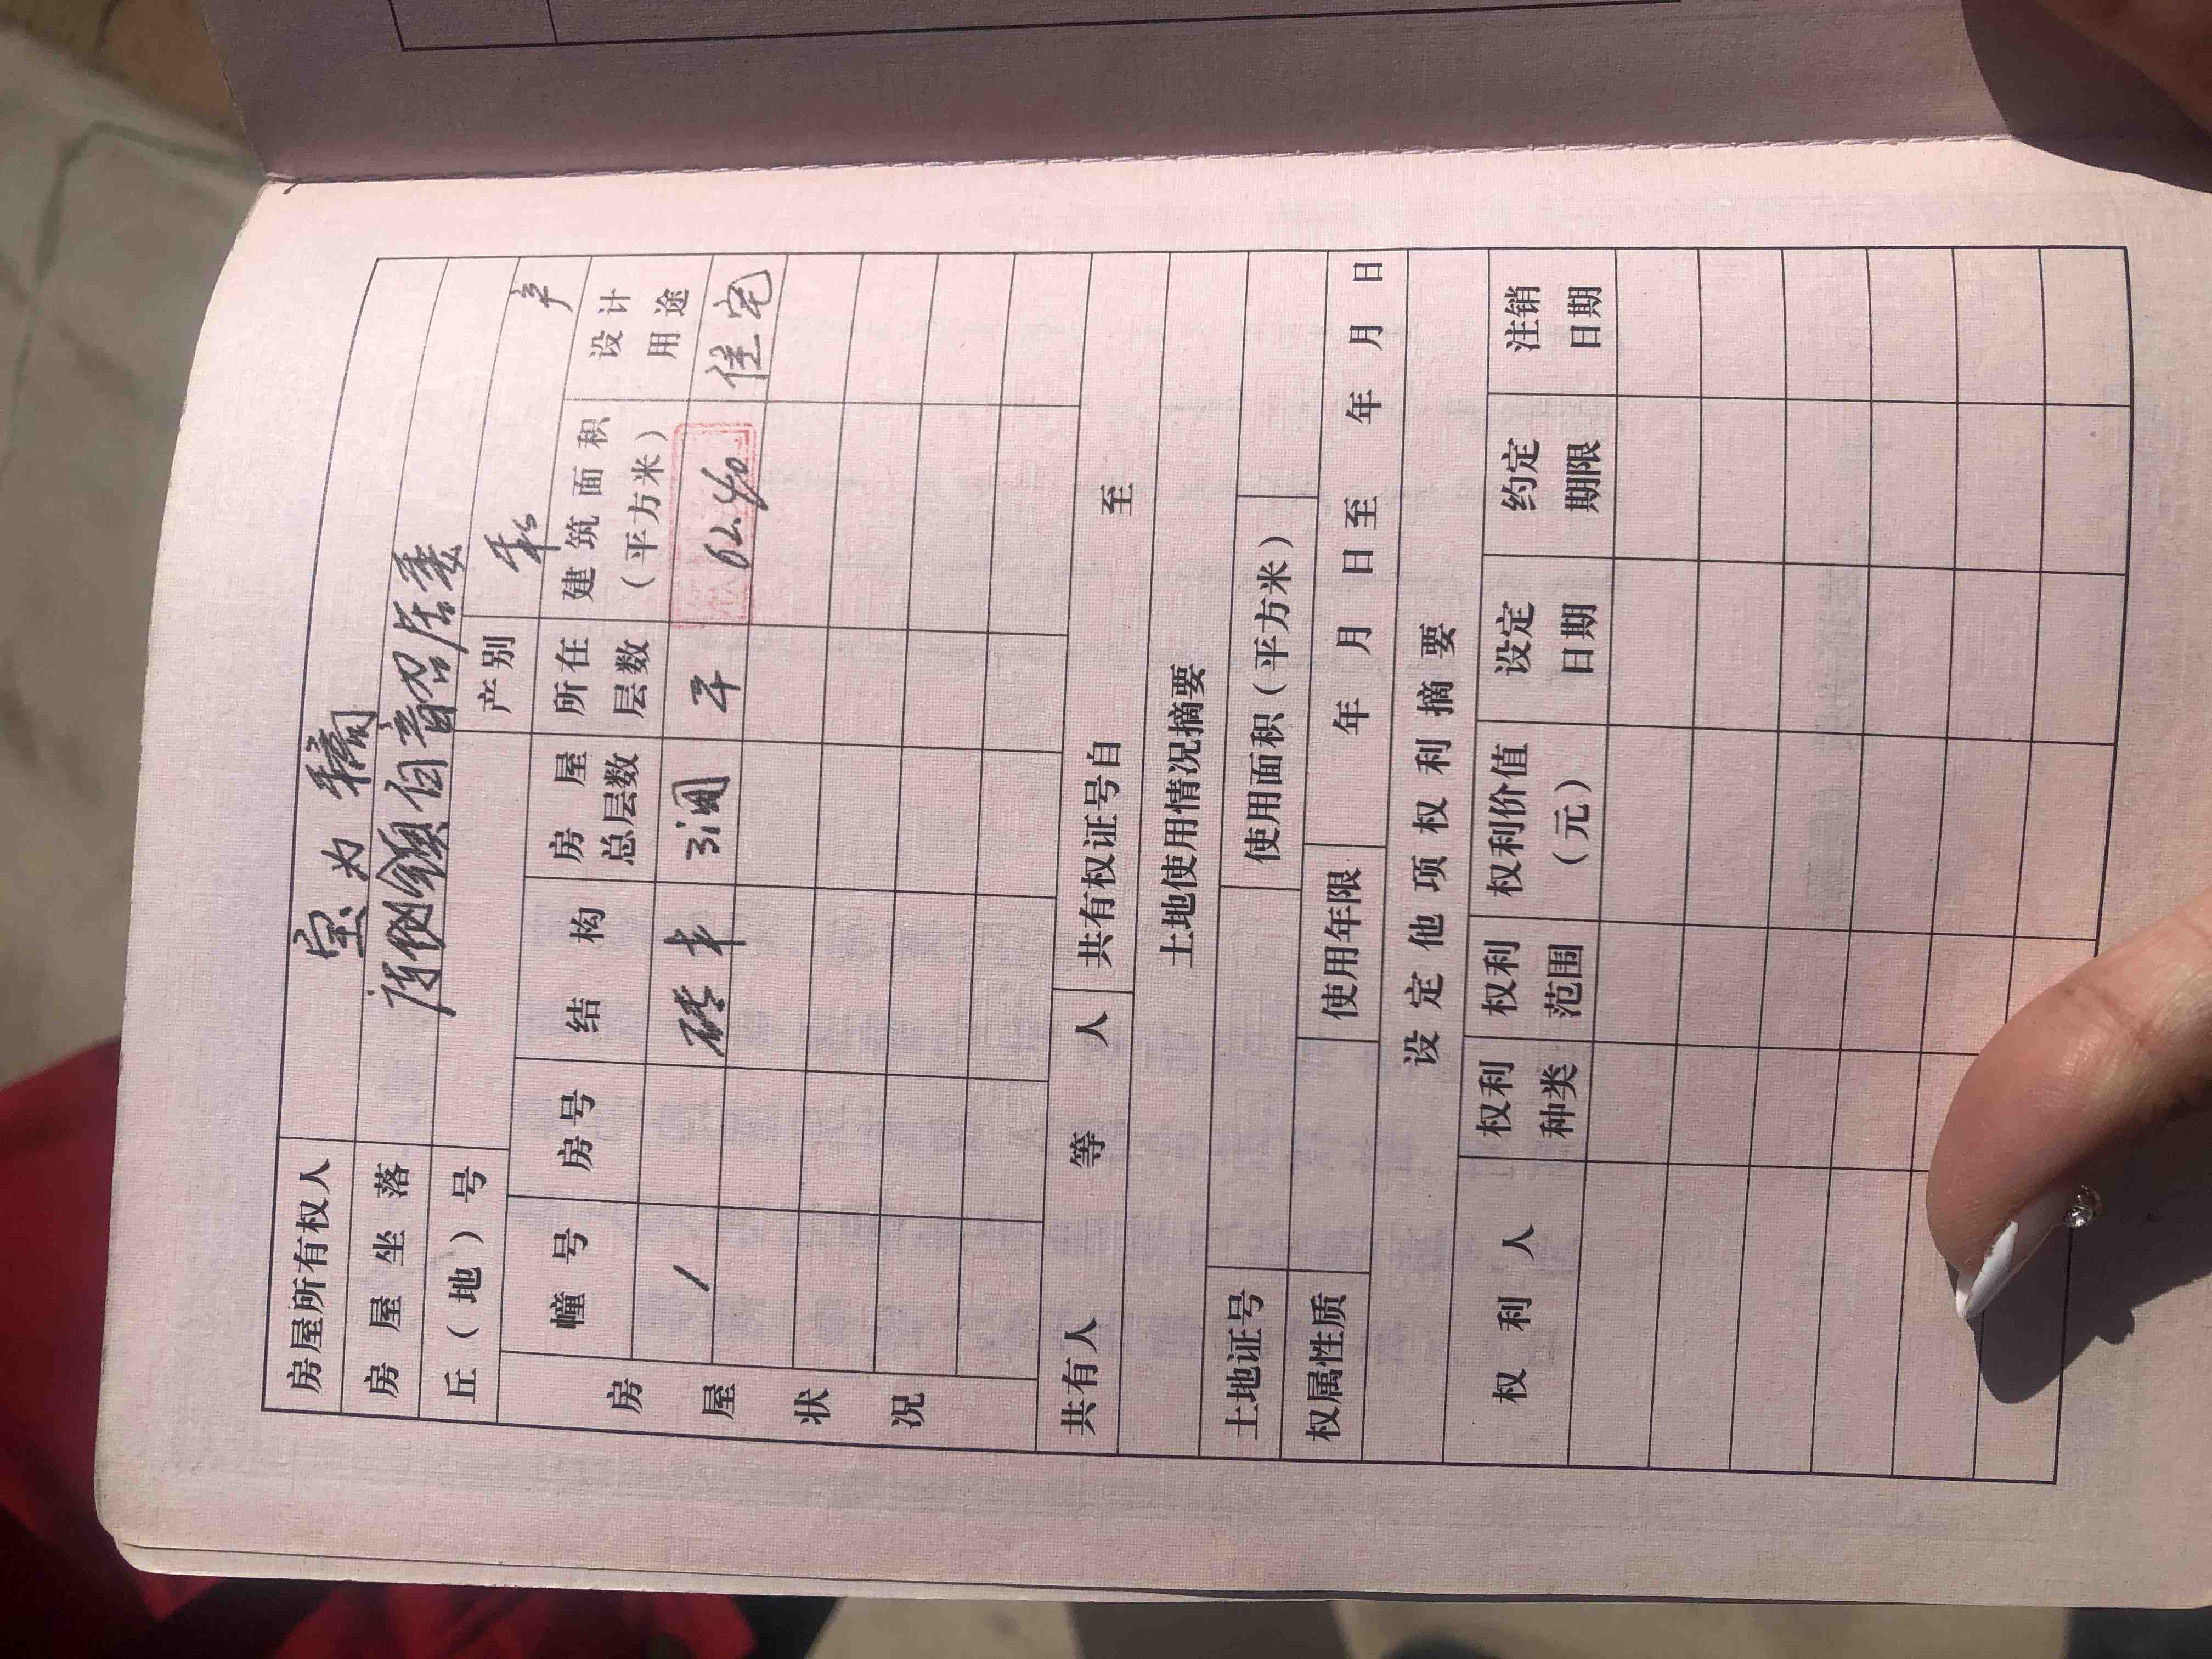 房屋所有权人 宝为
房屋坐落 自音召居委
丘(地)号 产别 私产
房屋状况
幢号 房号 结构 房屋总层数 所在层数 建筑面积(平方米) 设计用途
1 砖木 3间 平 62.40 住宅
共有人 等 人 共有权证号自 至
土地使用情况摘要
土地证号 使用面积(平方米)
权属性质 使用年限 年 月 日至 年 月 日
设定他项权利摘要
权利人 权利种类 权利范围 权利价值(元) 设定日期 约定期限 注销日期